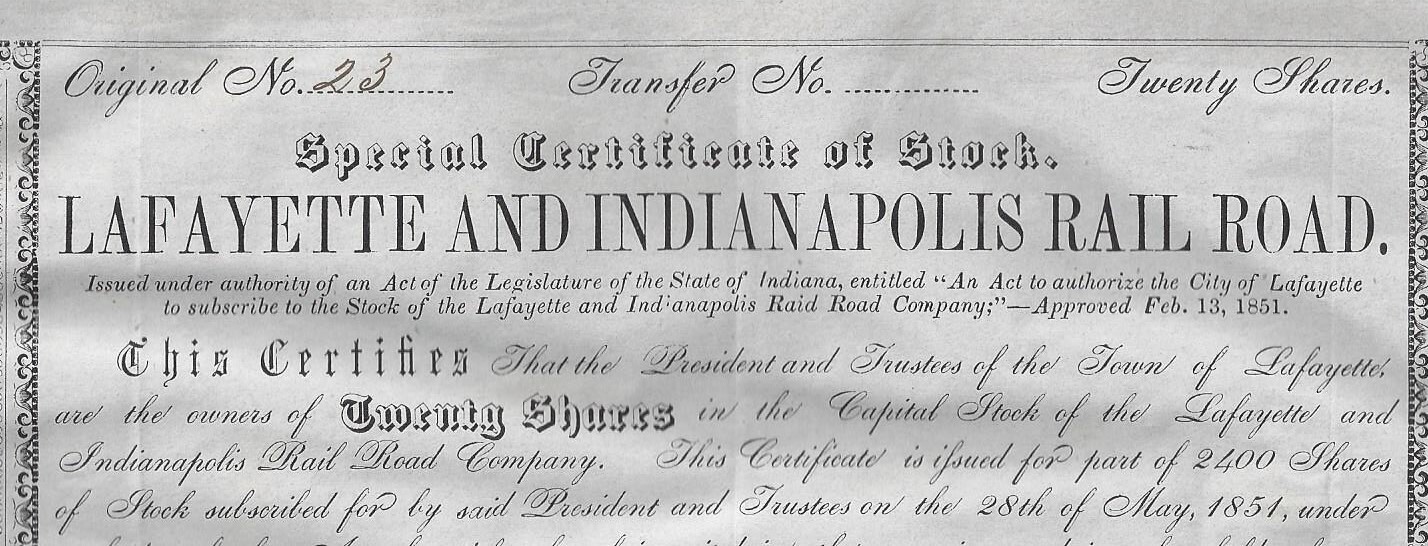 Original No. 23 Transfer No. Twenty Shares.
Special Certificate of Stock.
LAFAYETTE AND INDIANAPOLIS RAIL ROAD.
Issued under authority of an Act of the Legislature of the State of Indiana, entitled “An Act to authorize the City of Lafayette
to subscribe to the Stock of the Lafayette and Indianapolis Raid Road Company;”—Approved Feb. 13, 1851.
This Certifies That the President and Trustees of the Town of Lafayette,
are the owners of Twenty Shares in the Capital Stock of the Lafayette and
Indianapolis Rail Road Company. This Certificate is iſsued for part of 2400 Shares
of Stock subscribed for by said President and Trustees on the 28th of May, 1851, under